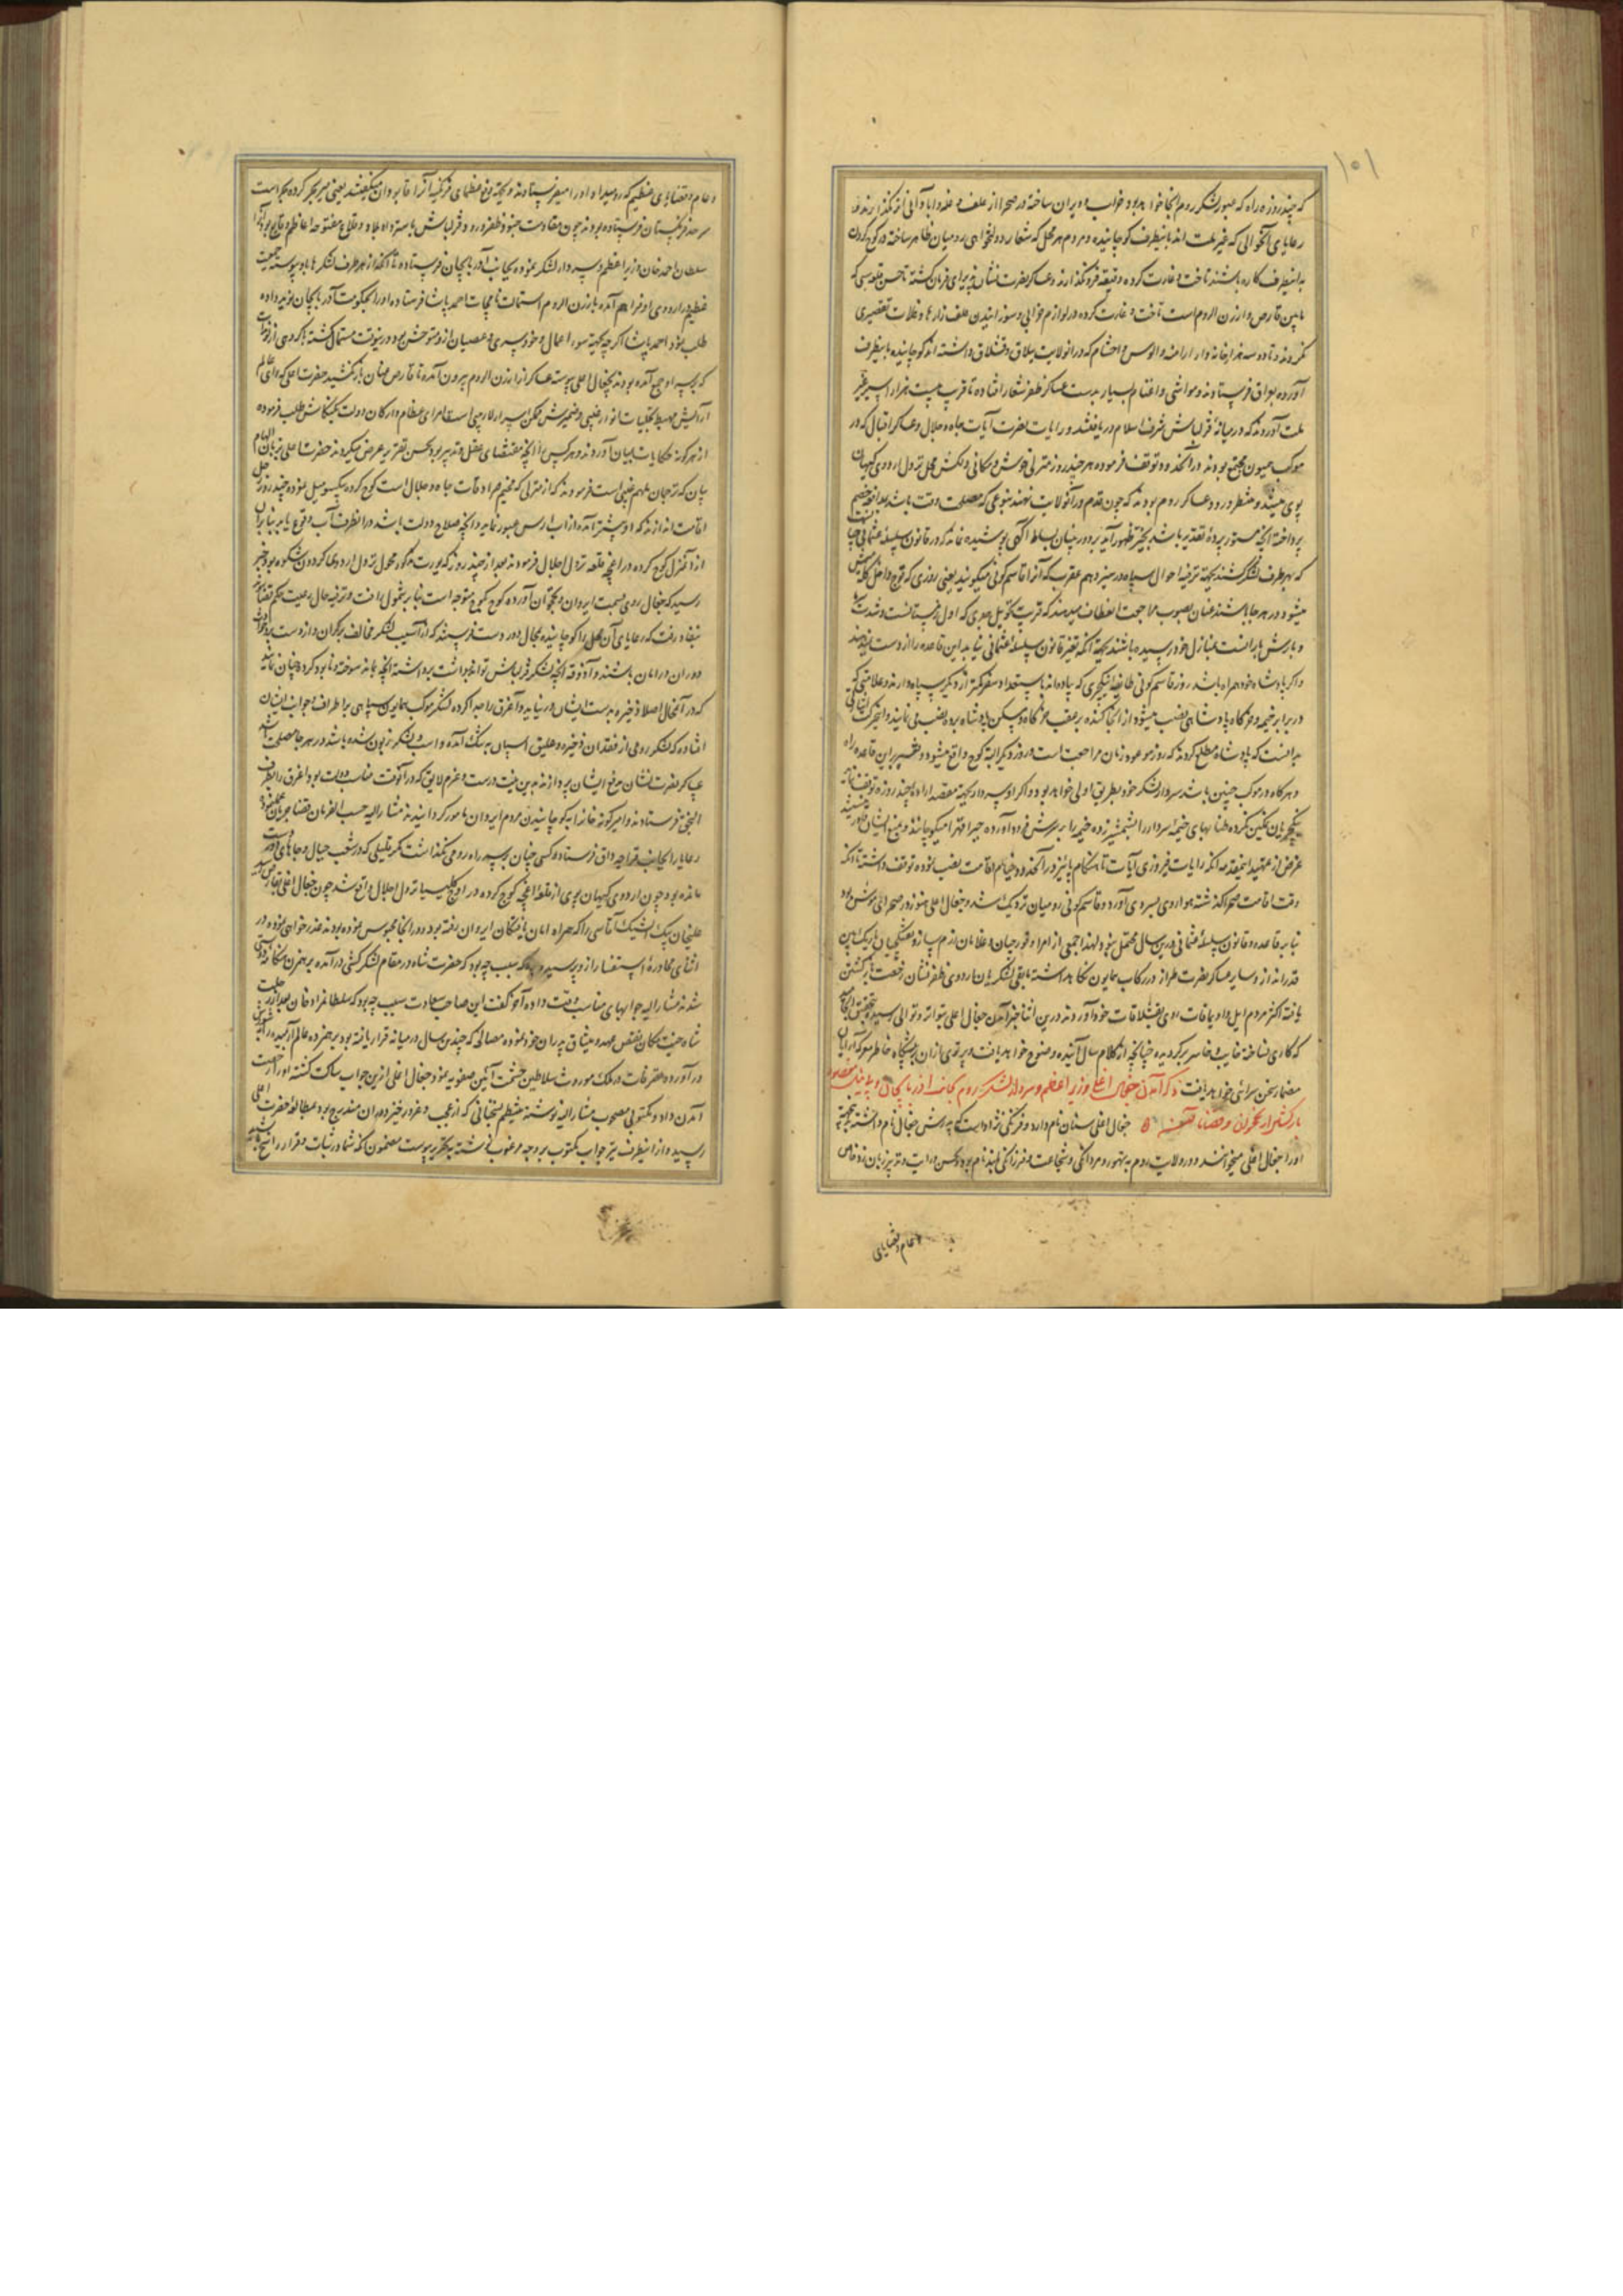 ۱۰۱
که چند روزه راه که عبور لشکر روم از آنجا خواهد بود خراب و ویران ساخته در صحرا از علف و غله و آبادانی اثر نگذارند و
رعایای آنحوالی که غیر ملت اند باینطرف کوچانیده و مردم هر محل که شعار دولتخواهی رومیان ظاهر ساخته در کوچ کردن
باینطرف کاره باشند تاخت و غارت کرده دقیقه فرو نگذارند و عساکر نصرت نشان پذیرای فرمان گشته تا حسن قلعه سی که
مابین قارص و ارزن الروم است تاخت و غارت کرده در لوازم خرابی و سوزانیدن علف زارها و غلات تقصیری
نکردند و تا دو سه هزار خانه وار ارامنه و الوس و احشام که در آنولایت ییلاق و قشلاق داشته اند کوچانیده باینطرف
آورده بعراق فرستادند و مواشی و اغنام بسیار بدست عساکر ظفر شعار افتاده تا قریب بیست هزار اسیر غیر
ملت آوردند که در میانه قزلباش شرف اسلام دریافتند و رایات نصرت آیات جاه و جلال و عساکر اقبال که در
موکب همیون مجتمع بودند در آنحدود توقف فرموده هر چند روز منزلی خوش و مکانی دلکش محل نزول اردوی کیهان
پوی میشد و منتظر ورود عساکر روم بودند که چون قدم در آنولایت نهند بنوعی که مصلحت وقت باشد بمدافعه خصم
پرداخته آنچه مستور پرده تقدیر باشد بحیز ظهور آید بر دوربینان بساط آگهی پوشیده نماند که در قانون سلسله عثمانی
که بهر طرف لشکر کشند بجهته ترفیه احوال سپاه در سیزدهم عقرب که آنرا قاسم کونی میگویند یعنی روزی که قوچ داخل گله
میشود در هر جا باشند عنان بصوب مراجعت انعطاف میدهند که قریب تحویل جدی که اول زمستانست و شدت
و بارش باران است بمنازل خود رسیده باشند بجهته آنکه تغیر قانون سلسله عثمانی نیابد این قاعده را از دست نمیدهند
و اگر پادشاه خود همراه باشد روز قاسم کونی طایفه ینکچری که پیاده اند با استعداد سفر کمتر از دیگر سپاه دارند و علامتی که
در برابر خیمه و خرگاه پادشاهی نصب میشود از آنجا کنده بر عقب خرگاه و مسکن پادشاه برده نصب می نمایند و اینحرکت
بدانست که پادشاه مطلع گردند که روز موعود زمان مراجعت است و روز دیگر البته کوچ واقع میشود و تغییر بر این قاعده راه
و هر گاه در موکب چنین باشد سردار لشکر خود بطریق اولی خواهد بود و اگر او سپه دار بجهته مقصد اراده چند روزه توقف نماید
ینکچریان تمکین نکرده طنابهای خیمه سردار را بشمشیر زده خیمه را بر سرش فرود آورده جبرا و قهرا میکوچانند و بمنع ایشان
غرض از تمهید اینمقدمه آنکه رایات فیروزی آیات تا هنگام پائیز در آنحدود خیام اقامت نصب نموده توقف داشته تا آنکه
وقت اقامت صحرا گذشته هوا روی بسردی آورد و قاسم کونی رومیان نزدیک شد و جغال اغلی هنوز در صحرای موش بود
بنا بر قاعده و قانون سلسله عثمانی درین سال محتمل نبود لهذا جمعی از امرا و قورچیان و غلامان رزم ساز و تفنگچیان
قدر انداز و سایر عساکر نصرت طراز در رکاب همایون نگاهداشته مابقی لشکریان اردوی ظفر نشان رخصت برگشتن
یافته اکثر مردم ایل و اویماقات روی بقشلاقات خود آوردند درین اثنا خبر آمدن جغال اغلی متواتر و توالی رسید
که کاری نساخته خایب و خاسر برگردیده چنانچه از کلام سال آینده وضوح خواهد یافت و پرتوی از آن بر پیشگاه خاطر معرکه آرایان
مضمار سخن سرائی خواهد یافت ذکر آمدن جغال اغلی وزیر اعظم و سردار لشکر روم بجانب آذربایجان
جغال اغلی سنان نام دارد و فرنگی نژاد است که پدرش جغال نام داشته بجهته
او را جغال اغلی میخوانند و در ولایت روم بتهور و مردانگی و شجاعت و فرزانگی بلند نام بود و بحسن درایت و تدبیر زبان زد خاص
و عام و قضایای
و عام و قضایای عظیم که رومیه او را میفرستادند و بجهته دفع عظمای فرنگیه آنرا قاپودان میگفتند یعنی میر بحر کرده بحراست
سرحد فرنگستان فرستاده بودند چون مقاومت جنود ظفر ورود قزلباش باسترداد بلاد و قلاع مفتوحه اعاظم وقایع بود
سلطان احمد خان وزیر اعظم و سپه دار لشکر نموده بجانب آذربایجان فرستاده تا آنکه از هر طرف لشکرها باو پیوسته جمعیت
عظیم در اردوی او فراهم آمده بارزن الروم استمالت نامجات احمد پاشا فرستاده او را بحکومت آذربایجان نوید داده
طلب نمود احمد پاشا اگرچه بجهته سوء اعمال و خودسری و عصیان از او متوحش بود درینوقت مستمال گشته با گروهی
که بر سر او جمع آمده بودند بجغال اغلی پیوسته عساکر از ارزن الروم بیرون آمده تا قارص عنان باز نکشید حضرت اعلی که رای عالم
آرایش مهبط تجلیات انوار غیبی و ضمیرش ممکن اسرار لاریبی است امرای عظام و ارکان دولت بکنکاش طلب فرموده
از هر گونه حکایات بمیان آوردند و هر کس را آنچه مقتضای عقل و تدبیر بود بحسن تقریر بعرض میکردند حضرت اعلی بزبان الهام
بیان که ترجمان ملهم غیبی است فرمودند که از منزلی که مخیم سرادقات جاه و جلال است کوچ کرده یکسو میل نموده چند روز
اقامت اندازند که او پیشتر آمده از آب ارس عبور نماید و آنچه صلاح دولت باشد در آنطرف آب وقوع یابد بنابران
از آن منزل کوچ کرده در اغجه قلعه نزول اجلال فرمودند بعد از چند روز که یورت مذکور محل نزول اردوی گردون شکوه بود خبر
رسید که جغال روی بسمت ایروان و نخجوان آورده کوچ بکوچ متوجه است بنا بر شمول رافت و ترفیه حال رعیت حکم قضا
بنفاذ رفت که رعایای آن محل را کوچانیده بمحال دور دست فرستند که از آسیب لشکر مخالف بر کران و از دستبرد
دوران در امان باشند و آذوقه آنچه لشکر قزلباش تواند برداشت برداشته آنچه بماند سوخته و نابود گردد چنان نمایند
که در آنمحال اصلا ذخیره بدست ایشان در نیاید و آغرق را جدا کرده لشکر موکب همایون سپاهی بر اطراف و جوانب ایشان
افتاده که لشکر رومی از فقدان ذخیره و علیق اسپان به تنگ آمده و اسب و لشکر زبون شده باشد در هر جا مصلحت
عساکر نصرت نشان بدفع ایشان پردازند بدین نیت درست و عزم لایق که در آنوقت مناسب دولت بود اغرق را بطرف
النجق فرستادند و امیرگونه خان را بکوچانیدن مردم ایروان مامور گردانیدند مشار الیه حسب الفرمان قضا جریان
رعایا را بجانب قراجه داق فرستاد و کسی چنان بر سر راه رومی نگذاشت مگر قلیلی که در شعب جبال و جاهای
مانده بود چون اردوی کیهان پوی از قلعه اغجه کوچ کرده در اوچ کلیسیا نزول اجلال واقع شد چون جغال اغلی بقارص رسید
علیخان بیک ایشیک آقاسی را که همراه امان یافتگان ایروان رفته بود و در آنجا محبوس نموده بودند عذرخواهی نموده در
اثنای محاوره استفسار از او پرسید که سبب چه بود که حضرت شاه در مقام لشکر کشی در آمده
شدند مشار الیه جوابهای مناسب وقت داده آخر گفت این صاحب سعادت سبب چه بود که سلطان مراد خان بعد از رحلت
شاه جنت مکان نقض عهد و میثاق پدران خود نموده مصالحه که چندین سال در میانه قرار یافته بود بر هم زده عالم آرمیده را
در آورده متصرفات در ملک موروث سلاطین حشمت آئین صفویه نمود جغال اغلی ازین جواب ساکت گشته او را رخصت
آمدن داد و مکتوبی مصحوب مشار الیه نوشته مشتمل بسخنانی که از عجب و غرور خیزد در آن مندرج بود بمطالعه حضرت اعلی
رسید و از اینطرف نیز جواب مکتوب بر وجه مرغوب نوشته بتحریر پیوست مضمون آنکه شما در ثبات و قرار راسخ باشید